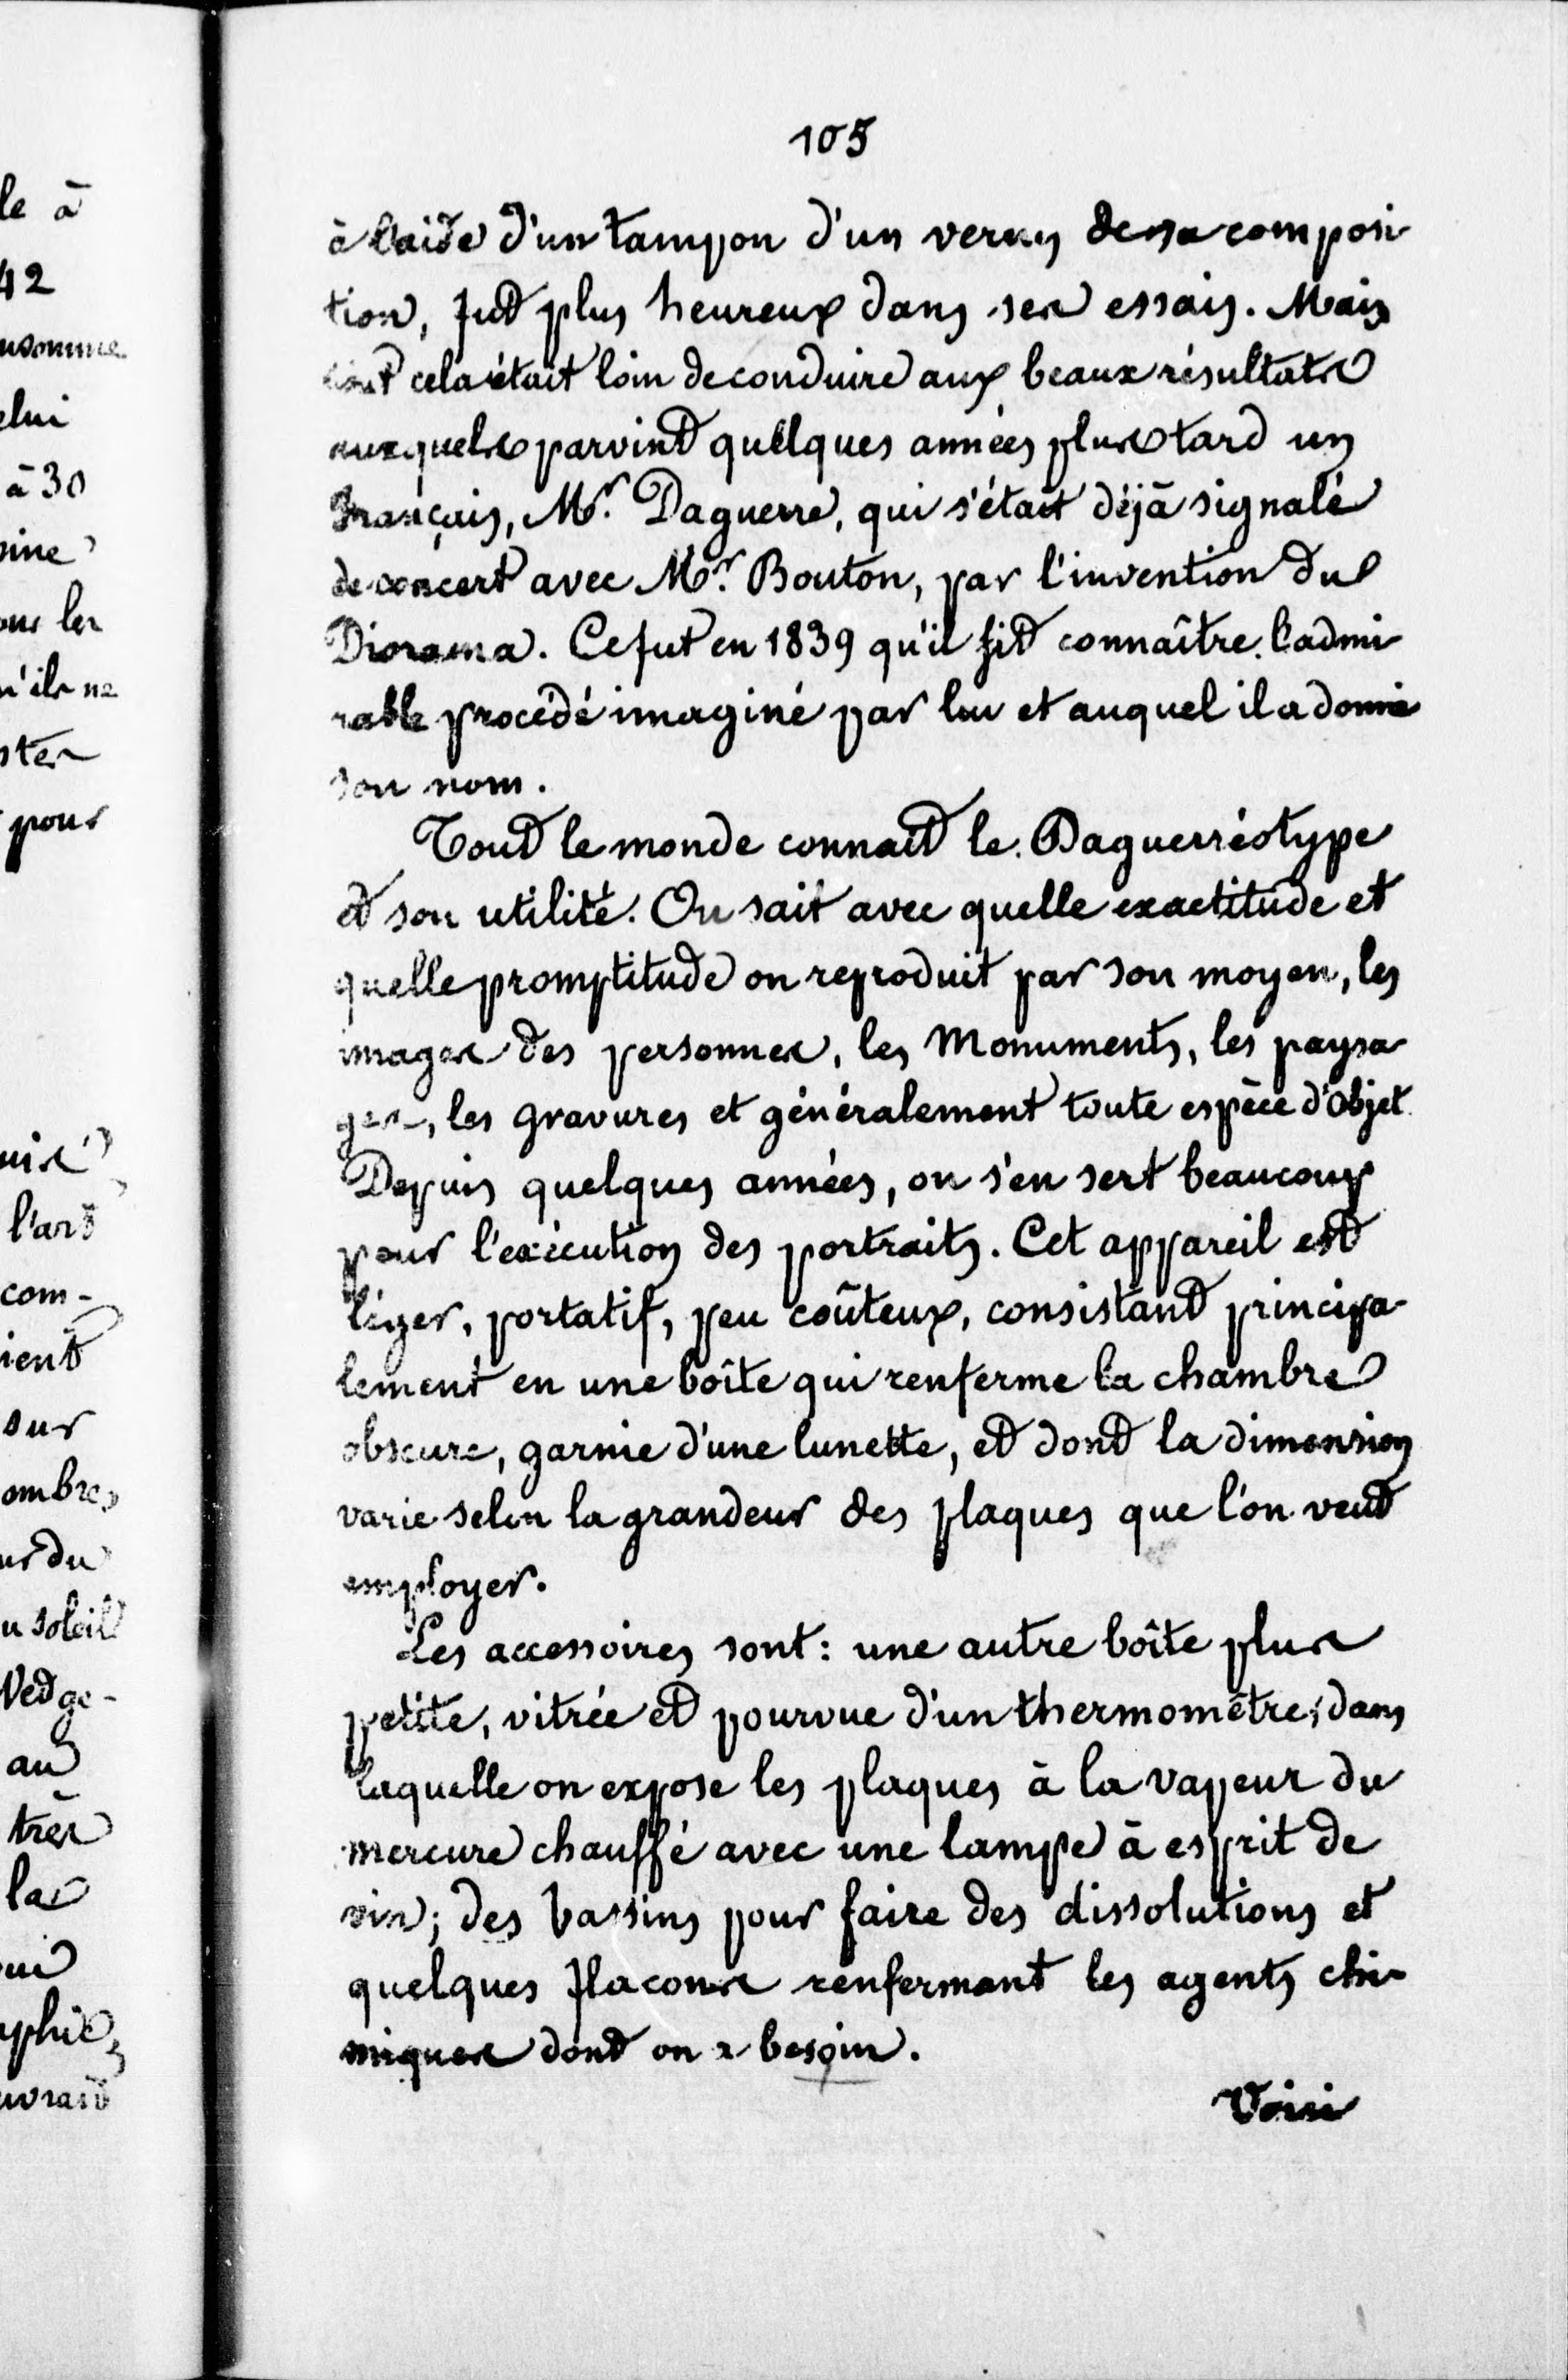 105
à l'aide d'un tampon d'un vernis de sa composi
tion, fut plus heureux dans ses essais. Mais
tout cela était loin de conduire aux beaux résultats
auxquels parvint quelques années plus tard un
Français, Mr. Daguerre, qui s'était déjà signalé
de concert avec Mr. Bouton, par l'invention du
Diorama. Ce fut en 1839 qu'il fit connaître l'admi
rable procédé imaginé par lui et auquel il a donné
son nom.
Tout le monde connait le Daguerréotype
et son utilité. On sait avec quelle exactitude et
quelle promptitude on reproduit par son moyen, les
images des personnes, les Monuments, les paysa
ges, les gravures et généralement toute espèce d'Objet
Depuis quelques années, on s'en sert beaucoup
pour l'exécution des portraits. Cet appareil est
léger, portatif, peu coûteux, consistant principa
lement en une boîte qui renferme la chambre
obscure, garnie d'une lunette, et dont la dimension
varie selon la grandeur des plaques que l'on veut
employer.
Les accessoires sont: une autre boîte plus
petite, vitrée et pourvue d'un thermomètre; dans
laquelle on expose les plaques à la vapeur du
mercure chauffé avec une lampe à esprit de
vin; des bassins pour faire des dissolutions et
quelques flacons renfermant les agents chi
miques dont on a besoin.
Voici
le à
42
elui
à 30
n'ils ne
pour
l'art
com-
ient
sur
ombres
ur du
u soleil
Wedge-
au
très
la